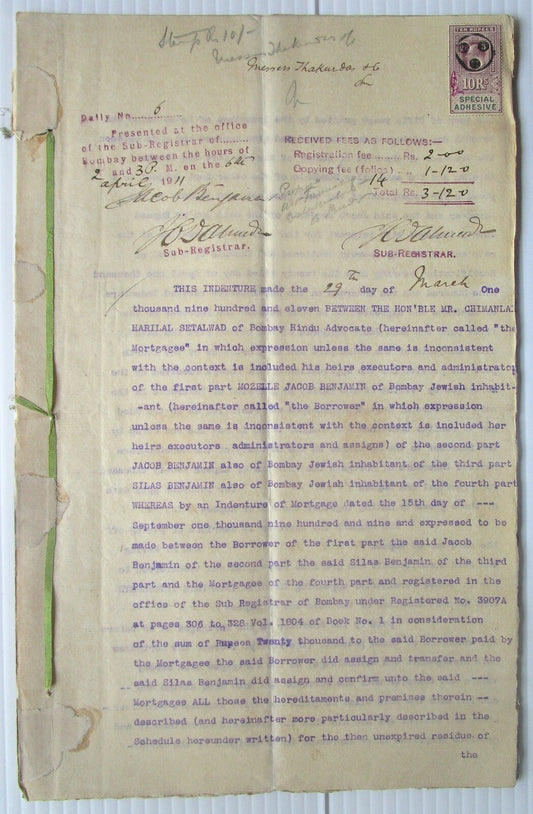 Stamp Rs 10/-
Messrs Thakurdas & Co
Messrs Thakurdas & Co
TEN RUPEES
10Rs
SPECIAL
ADHESIVE
Daily No. 6
Presented at the office
of the Sub-Registrar of
Bombay between the hours of
2 and 3 P. M. on the 6th
april 1911
Jacob Benjamin
Sub-Registrar.
RECEIVED FEES AS FOLLOWS:—
Registration fee ........ Rs. 2-00
Copying fee (folios) .. 1-120
14
Total Rs. 3-120
SUB-REGISTRAR.
THIS INDENTURE made the 29th day of March One
thousand nine hundred and eleven BETWEEN THE HON'BLE MR. CHIMANLA
HARILAL SETALWAD of Bombay Hindu Advocate (hereinafter called "the
Mortgagee" in which expression unless the same is inconsistent
with the context is included his heirs executors and administrator
of the first part MOZELLE JACOB BENJAMIN of Bombay Jewish inhabit-
-ant (hereinafter called "the Borrower" in which expression
unless the same is inconsistent with the context is included her
heirs executors administrators and assigns) of the second part
JACOB BENJAMIN also of Bombay Jewish inhabitant of the third part
SILAS BENJAMIN also of Bombay Jewish inhabitant of the fourth part
WHEREAS by an Indenture of Mortgage dated the 15th day of ---
September one thousand nine hundred and nine and expressed to be
made between the Borrower of the first part the said Jacob
Benjamin of the second part the said Silas Benjamin of the third
part and the Mortgagee of the fourth part and registered in the
office of the Sub Registrar of Bombay under Registered No. 3907A
at pages 306 to 328 Vol. 1804 of Book No. 1 in consideration
of the sum of Rupees Twenty thousand to the said Borrower paid by
the Mortgagee the said Borrower did assign and transfer and the
said Silas Benjamin did assign and confirm unto the said ---
Mortgages ALL those the hereditaments and premises therein --
described (and hereinafter more particularly described in the
Schedule hereunder written) for the then unexpired residue of
the